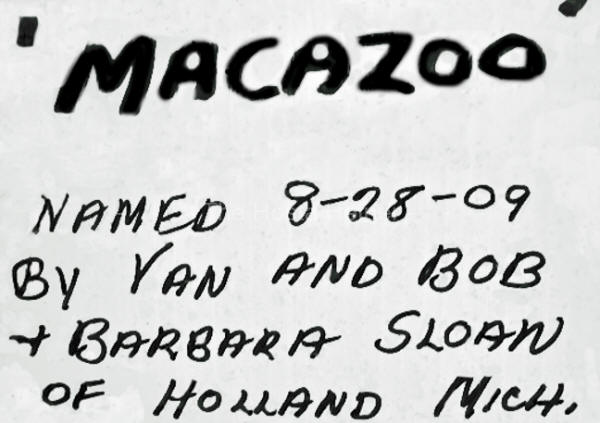 'MACAZOO'
NAMED 8-28-09
By VAN AND BOB
+ BARBARA SLOAN
OF HOLLAND MICH.